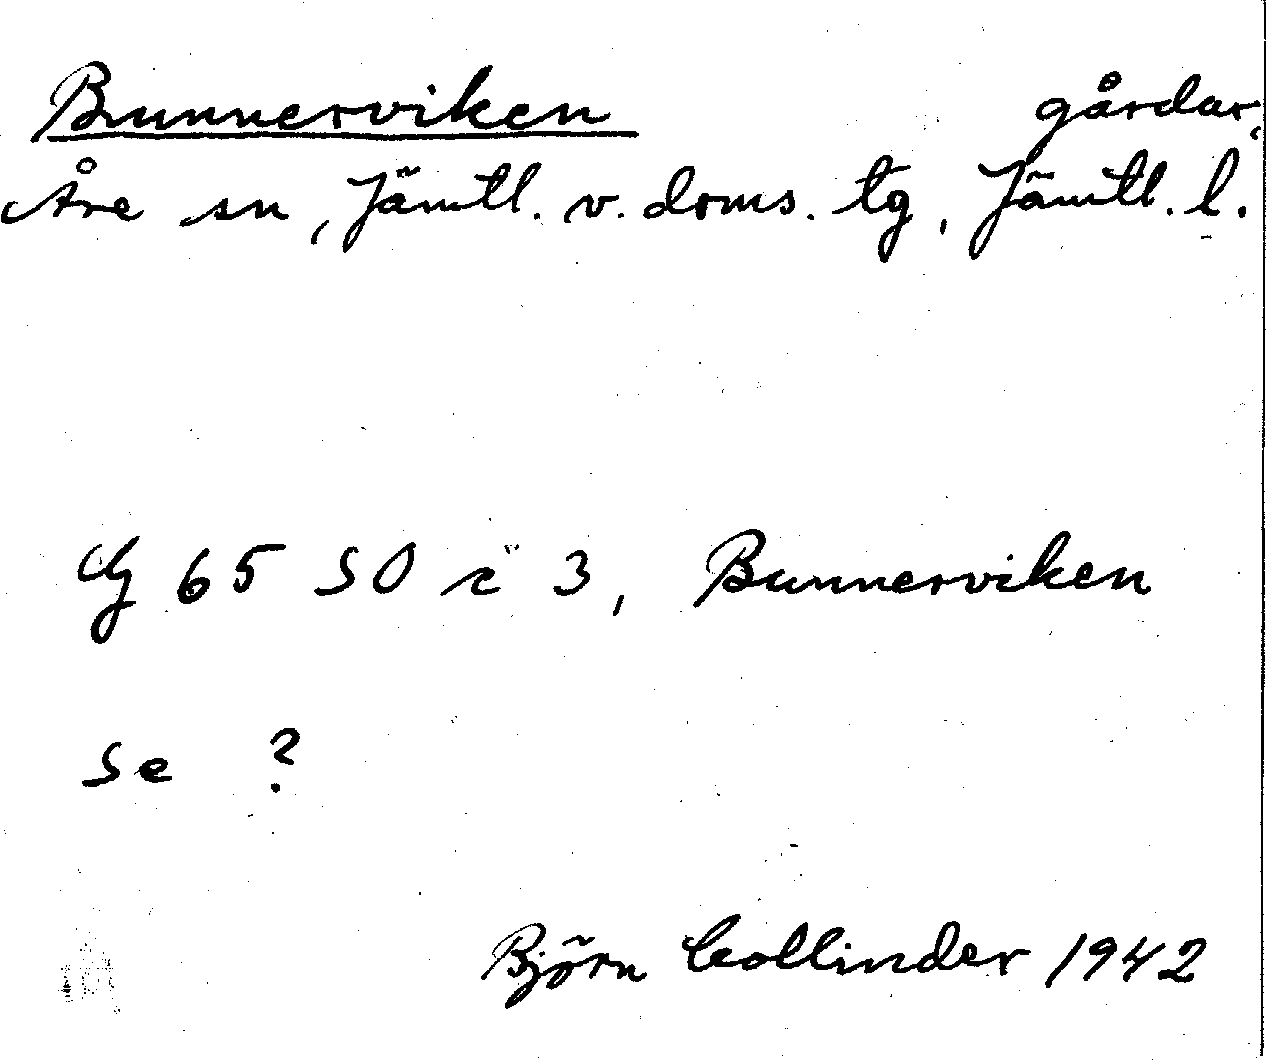 Bunnerviken gårdar,
Åre sn, Jämtl. v. doms. tg, Jämtl. l.
G 65 SO c 3, Bunnerviken
Se ?
Björn Collinder 1942